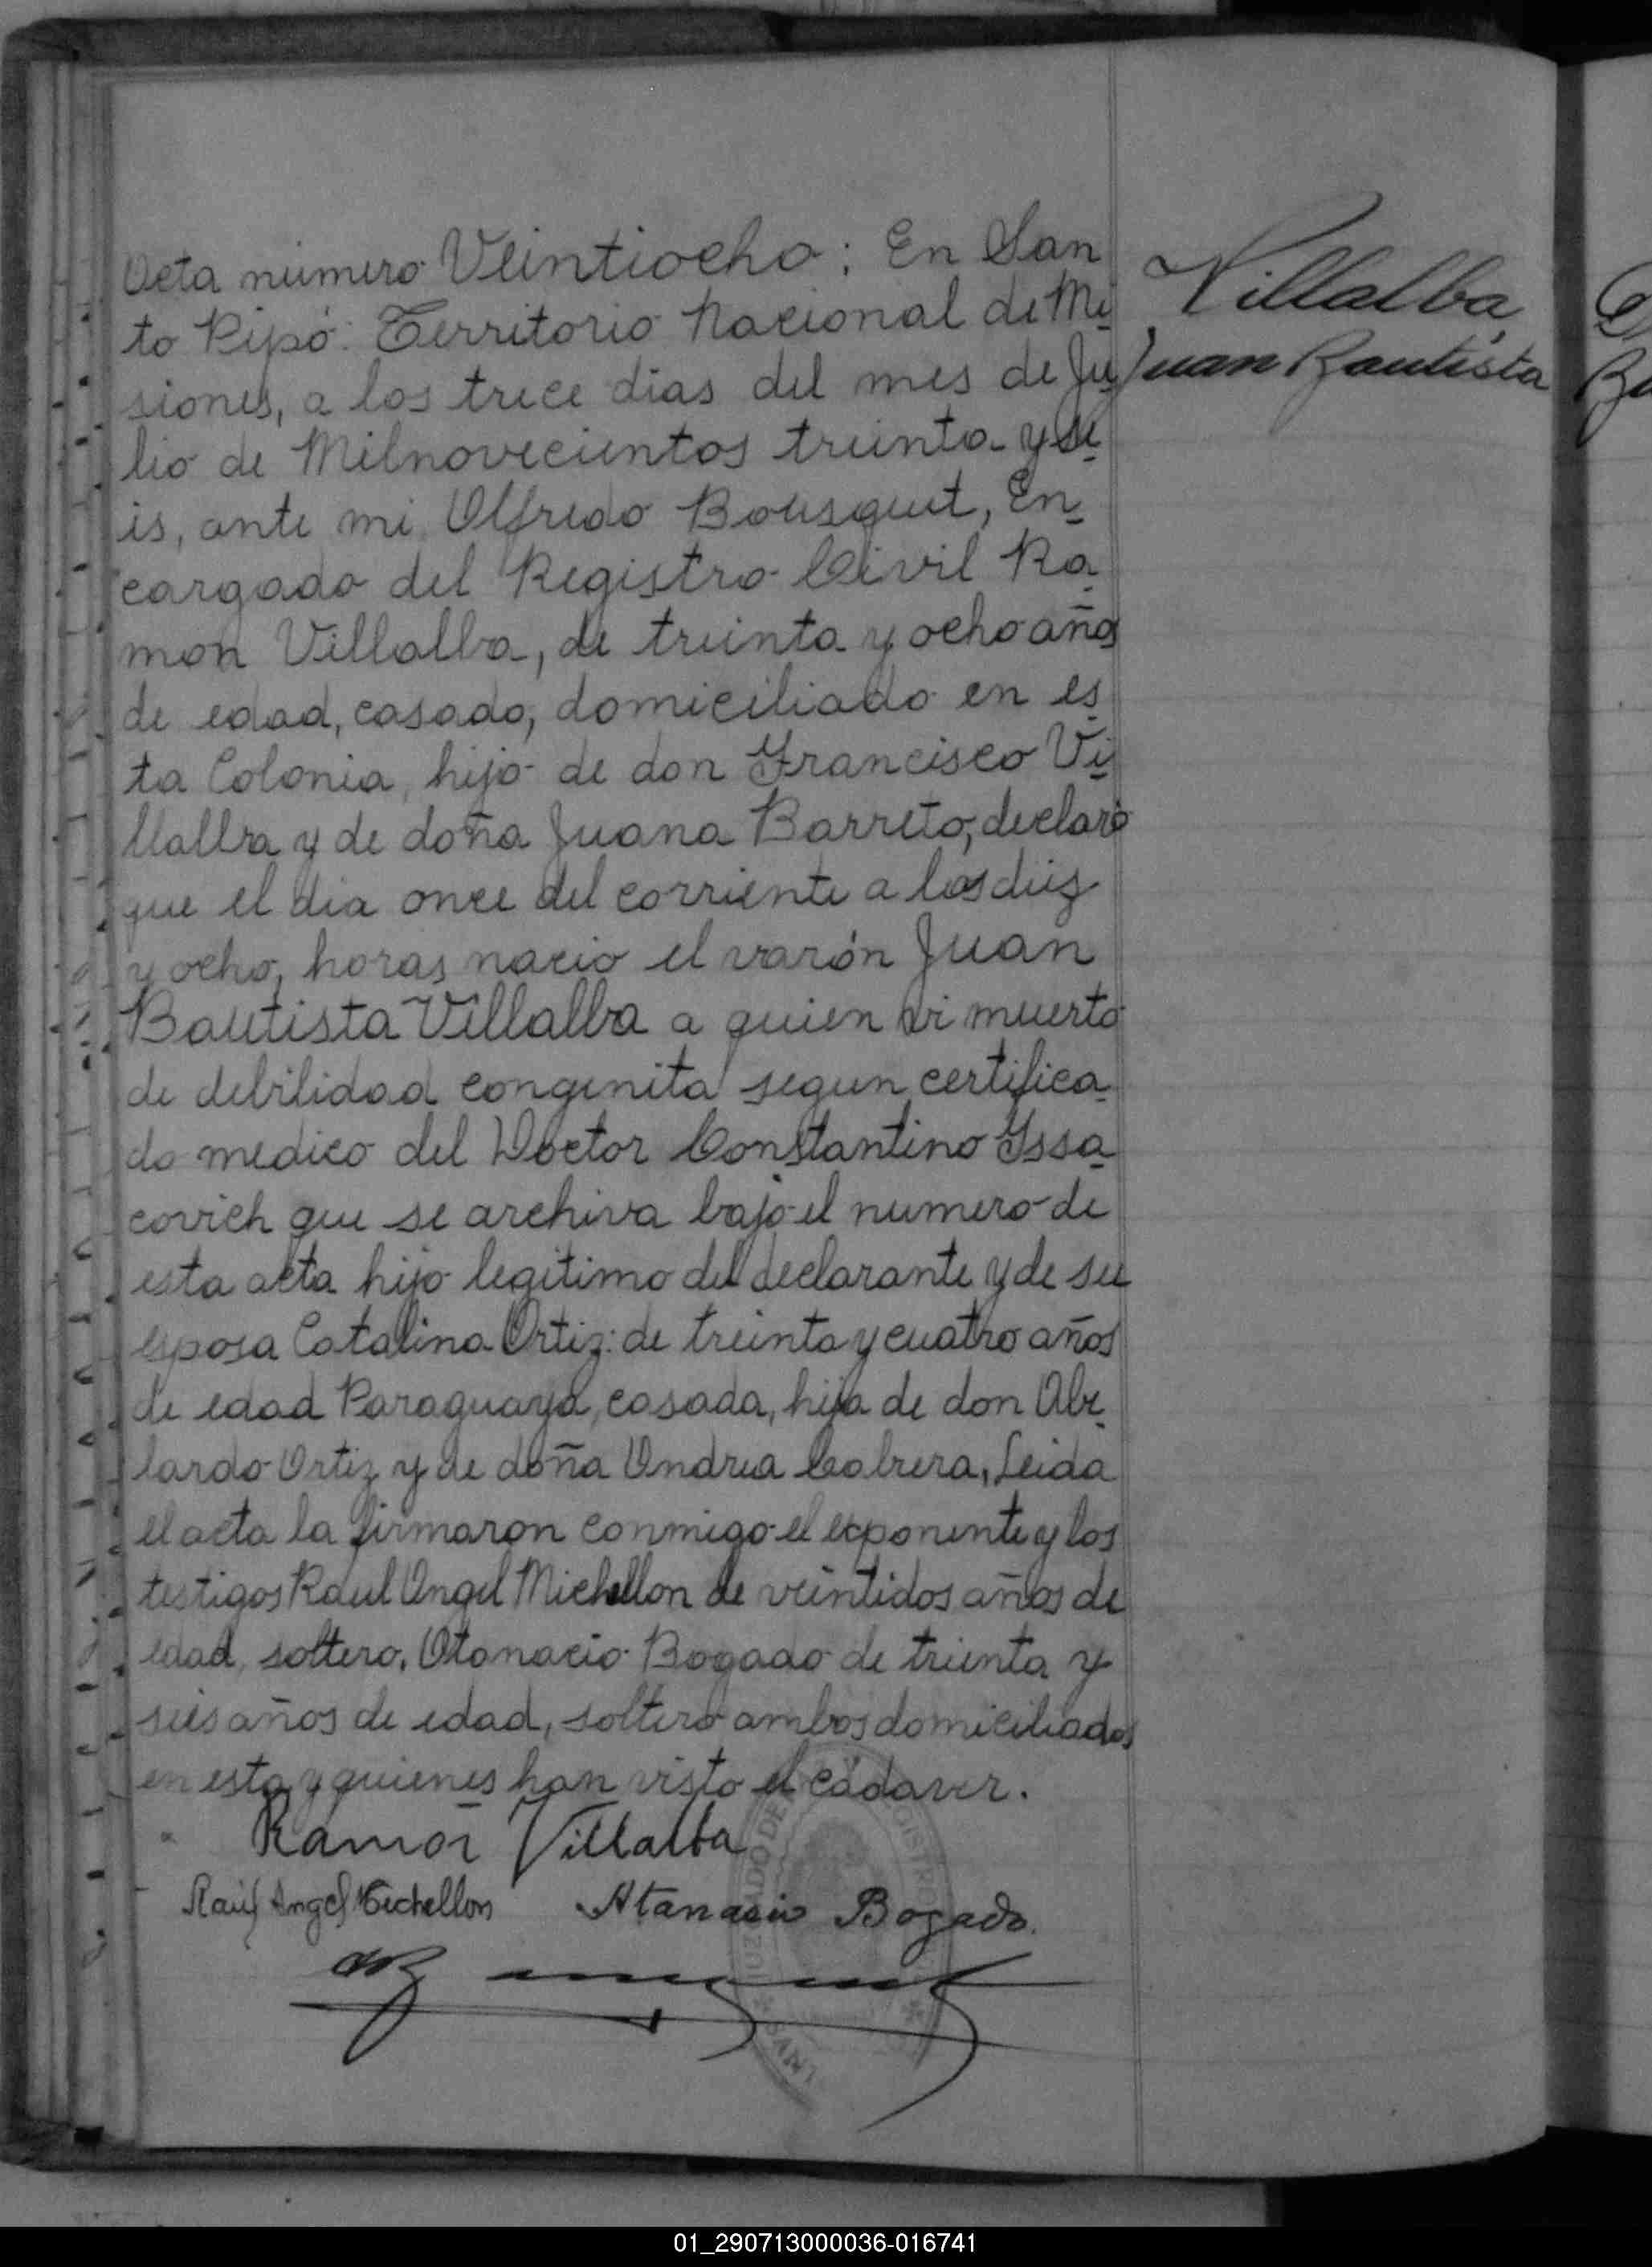 Acta número Veintiocho: En San
to Pipó: Territorio Nacional de Mi
siones, a los trece dias del mes de Ju
lio de Milnovecientos treinta y se
is, ante mi Alfredo Bousquet, En
cargado del Registro Civil Ra
mon Villalba, de treinta y ocho años
de edad, casado, domiciliado en es
ta Colonia, hijo de don Francisco Vi
llalba y de doña Juana Barreto, declaró
que el dia once del corriente a las diez
y ocho, horas nacio el varón Juan
Bautista Villalba a quien vi muerto
de debilidad congenita segun certifica
do medico del Doctor Constantino Yssa
covich que se archiva bajo el numero de
esta acta hijo legitimo del declarante y de su
esposa Catalina Ortiz: de treinta y cuatro años
de edad Paraguaya, casada, hija de don Abe
lardo Ortiz y de doña Andrea Cabrera, Leida
el acta la firmaron conmigo el exponente y los
testigos Raul Angel Michellon de veintidos años de
edad, soltero, Atanacio Bogado de treinta y
seis años de edad, soltero ambos domiciliados
en esta y quienes han visto el cádaver.
Ramon Villalba
Raúl Angel Michellon Atanasio Bogado.
Villalba,
Juan Bautista
01_290713000036-016741